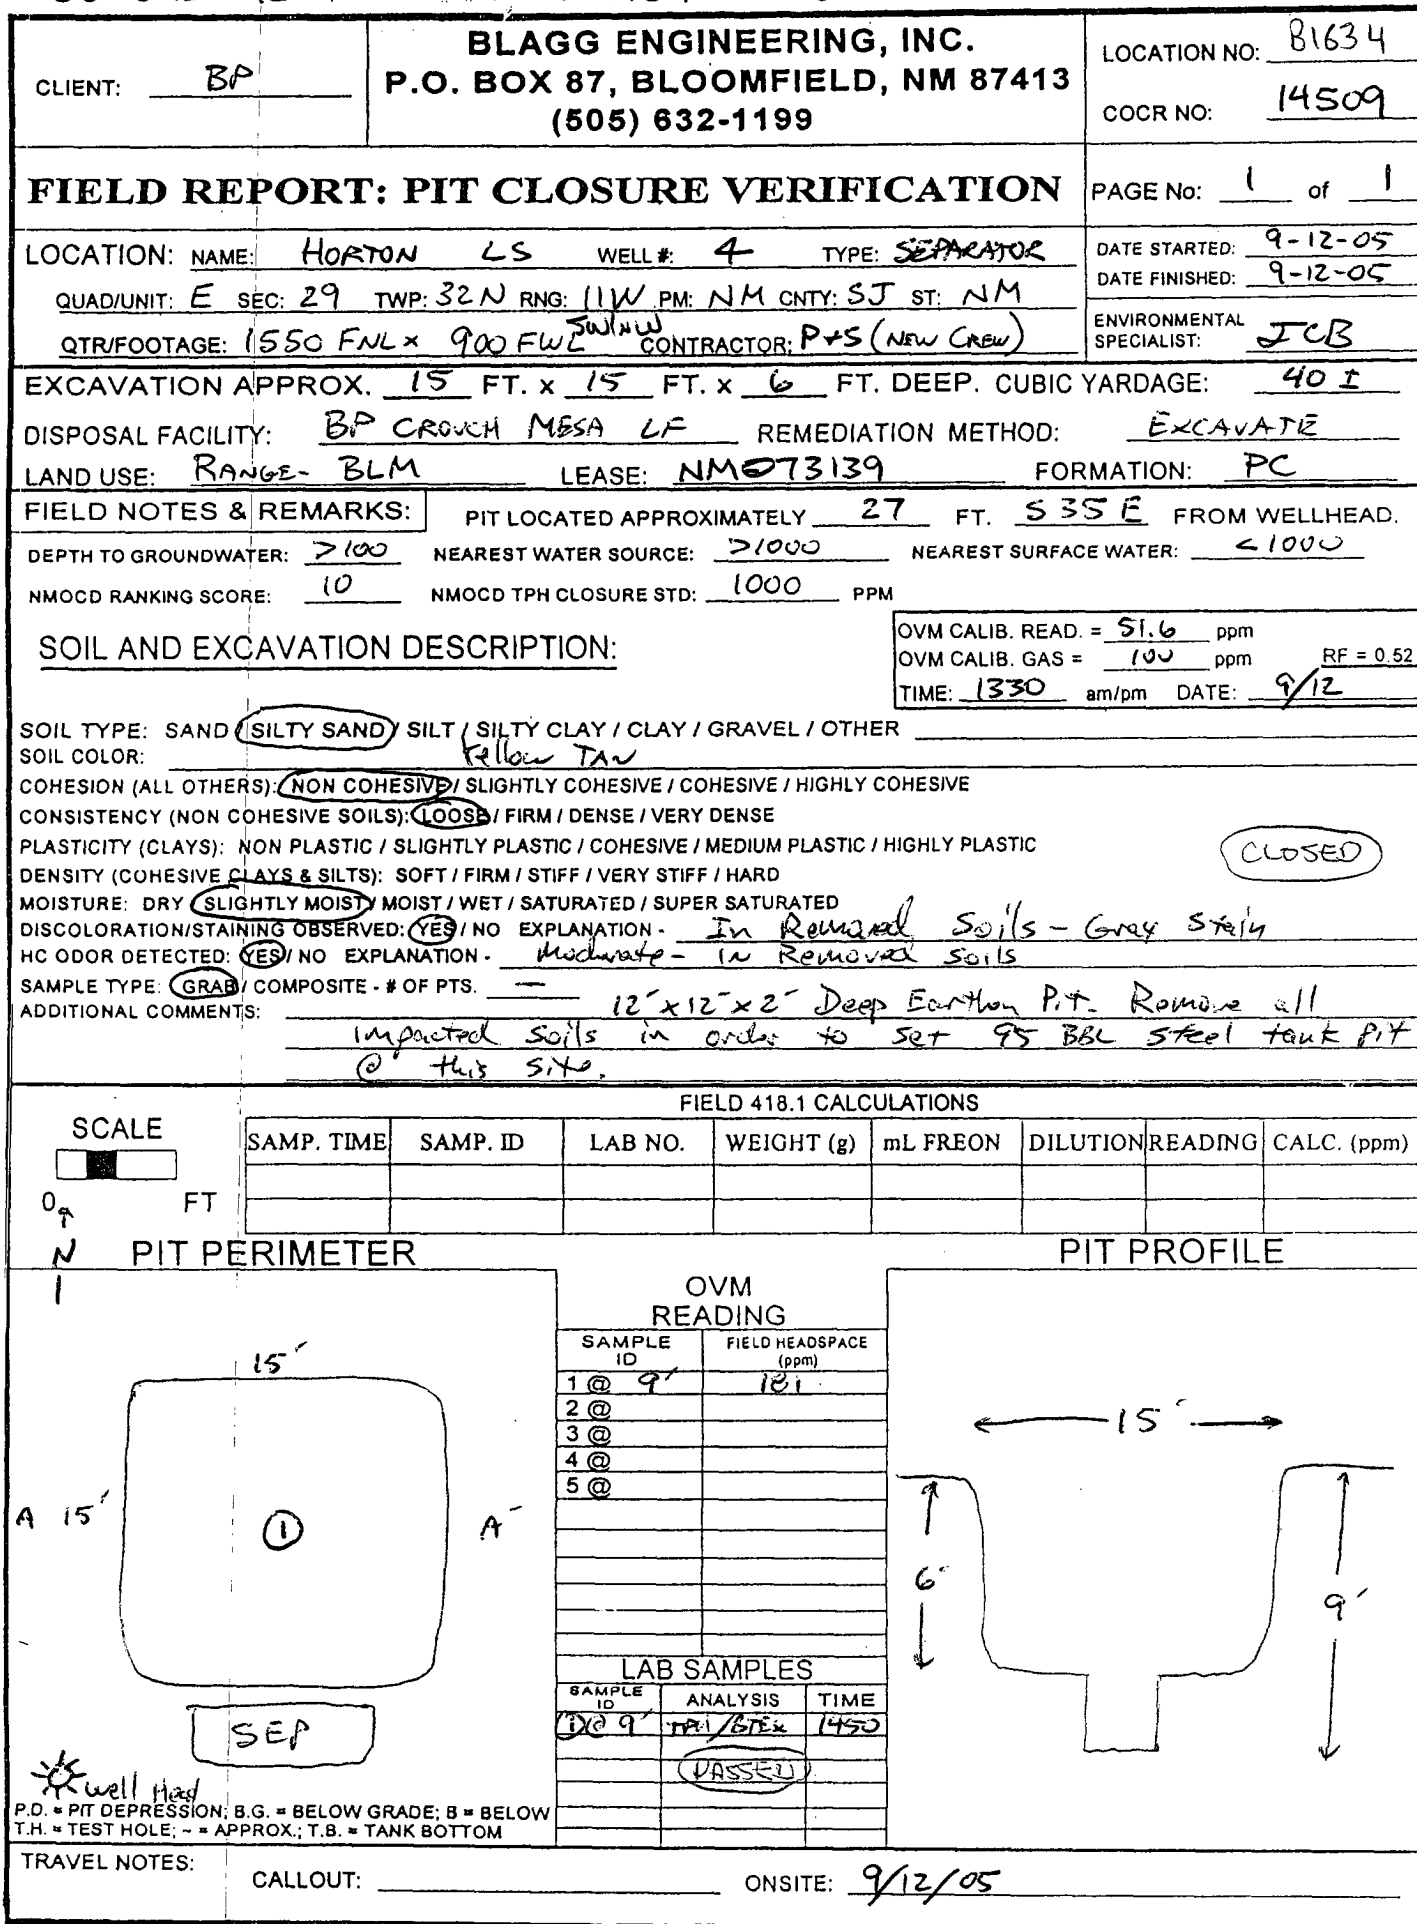 BLAGG ENGINEERING, INC.
P.O. BOX 87, BLOOMFIELD, NM 87413
(505) 632-1199
CLIENT: BP
LOCATION NO: B1634
COCR NO: 14509
FIELD REPORT: PIT CLOSURE VERIFICATION
PAGE No: 1 of 1
LOCATION: NAME: HORTON LS WELL #: 4 TYPE: SEPARATOR
QUAD/UNIT: E SEC: 29 TWP: 32N RNG: 11W PM: NM CNTY: SJ ST: NM
QTR/FOOTAGE: 1550 FNL x 900 FWL SW/NW CONTRACTOR: P+S (NEW CREW)
DATE STARTED: 9-12-05
DATE FINISHED: 9-12-05
ENVIRONMENTAL SPECIALIST: JCB
EXCAVATION APPROX. 15 FT. x 15 FT. x 6 FT. DEEP. CUBIC YARDAGE: 40 ±
DISPOSAL FACILITY: BP CROUCH MESA LF REMEDIATION METHOD: EXCAVATE
LAND USE: RANGE - BLM LEASE: NM073139 FORMATION: PC
FIELD NOTES & REMARKS: PIT LOCATED APPROXIMATELY 27 FT. S35E FROM WELLHEAD.
DEPTH TO GROUNDWATER: >100 NEAREST WATER SOURCE: >1000 NEAREST SURFACE WATER: <1000
NMOCD RANKING SCORE: 10 NMOCD TPH CLOSURE STD: 1000 PPM
SOIL AND EXCAVATION DESCRIPTION:
OVM CALIB. READ. = 51.6 ppm
OVM CALIB. GAS = 100 ppm RF = 0.52
TIME: 1330 am/pm DATE: 9/12
SOIL TYPE: SAND / SILTY SAND / SILT / SILTY CLAY / CLAY / GRAVEL / OTHER
SOIL COLOR: Yellow TAN
COHESION (ALL OTHERS): NON COHESIVE / SLIGHTLY COHESIVE / COHESIVE / HIGHLY COHESIVE
CONSISTENCY (NON COHESIVE SOILS): LOOSE / FIRM / DENSE / VERY DENSE
PLASTICITY (CLAYS): NON PLASTIC / SLIGHTLY PLASTIC / COHESIVE / MEDIUM PLASTIC / HIGHLY PLASTIC
CLOSED
DENSITY (COHESIVE CLAYS & SILTS): SOFT / FIRM / STIFF / VERY STIFF / HARD
MOISTURE: DRY / SLIGHTLY MOIST / MOIST / WET / SATURATED / SUPER SATURATED
DISCOLORATION/STAINING OBSERVED: YES / NO EXPLANATION - In Removed Soils - Gray Stain
HC ODOR DETECTED: YES / NO EXPLANATION - Moderate - IN Removed Soils
SAMPLE TYPE: GRAB / COMPOSITE - # OF PTS. —
ADDITIONAL COMMENTS: 12' x 12' x 2' Deep Earthen Pit. Remove all
impacted soils in order to set 95 BBL steel tank pit
@ this site.
FIELD 418.1 CALCULATIONS
SCALE
0 FT
SAMP. TIME SAMP. ID LAB NO. WEIGHT (g) mL FREON DILUTION READING CALC. (ppm)
N
PIT PERIMETER
15'
A 15'
1
A'
SEP
well Head
P.D. = PIT DEPRESSION; B.G. = BELOW GRADE; B = BELOW
T.H. = TEST HOLE; ~ = APPROX.; T.B. = TANK BOTTOM
OVM
READING
SAMPLE ID FIELD HEADSPACE (ppm)
1 @ 9' 181
2 @
3 @
4 @
5 @
LAB SAMPLES
SAMPLE ID ANALYSIS TIME
1 @ 9' TPH/BTEX 1450
PASSED
PIT PROFILE
15'
6'
9'
TRAVEL NOTES: CALLOUT: ONSITE: 9/12/05